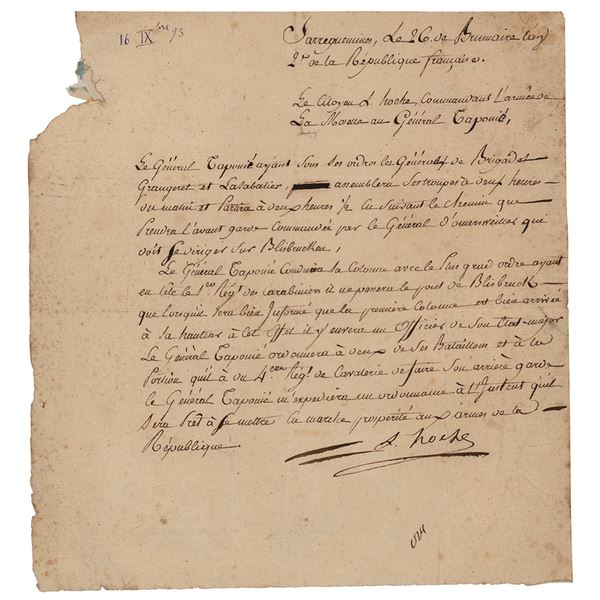 16 IX bre 93
Sarreguemines, Le 26. de Brumaire l'an
2e. de la République française.
Le Citoyen L. hoche, Commandant L'armée de
La Moselle au Général Taponié,
Le Général Taponié ayant Sous Ses ordres les Généraux de Brigades
Grangeret et Lasabatier, assemblera Ses troupes à deux heures
du matin et Partira à deux heures 1/2 en Suivant le chemin que
Prendra L'avant garde Commandée par le Général D'omersveilles qui
doit Se diriger Sur Blisbrucken,
Le Général Taponié Conduira Sa Colonne avec le Plus grand ordre ayant
en tête le 1er Régt. des carabiniers il ne passera le pont de Blisbruck
que lorsquil Sera bien Informé que la première Colonne est bien arrivée
à Sa hauteur à cet effet il y enverra un officier de Son Etat-major
Le Général Taponié ordonnera à deux de Ses Bataillons et à la
Portion quil à du 4eme Régt. de Cavalerie de faire Son arrière garde
le Général Taponié m'expédiera un ordonnance à L'Instent qu'il
Sera Prêt à Se mettre En marche prospérité aux armes de la
République.
L hoche